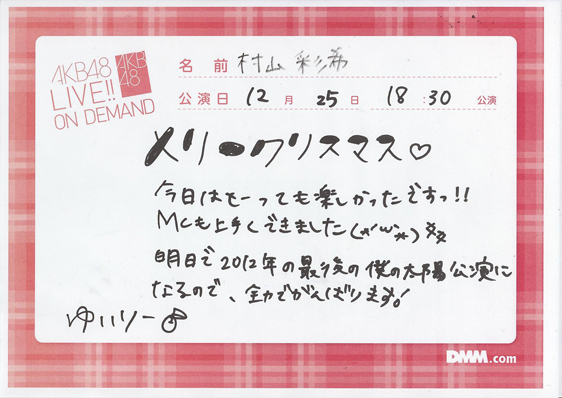 AKB48
LIVE!!
ON DEMAND
AKB
48
名前 村山 彩希
公演日 12月 25日 18:30 公演
メリークリスマス♡
今日はとーっても楽しかったですっ!!
MCも上手くできました(*'ω'*)
明日で2012年の最後の僕の太陽公演に
なるので、全力でがんばります!
ゆいりー
DMM.com